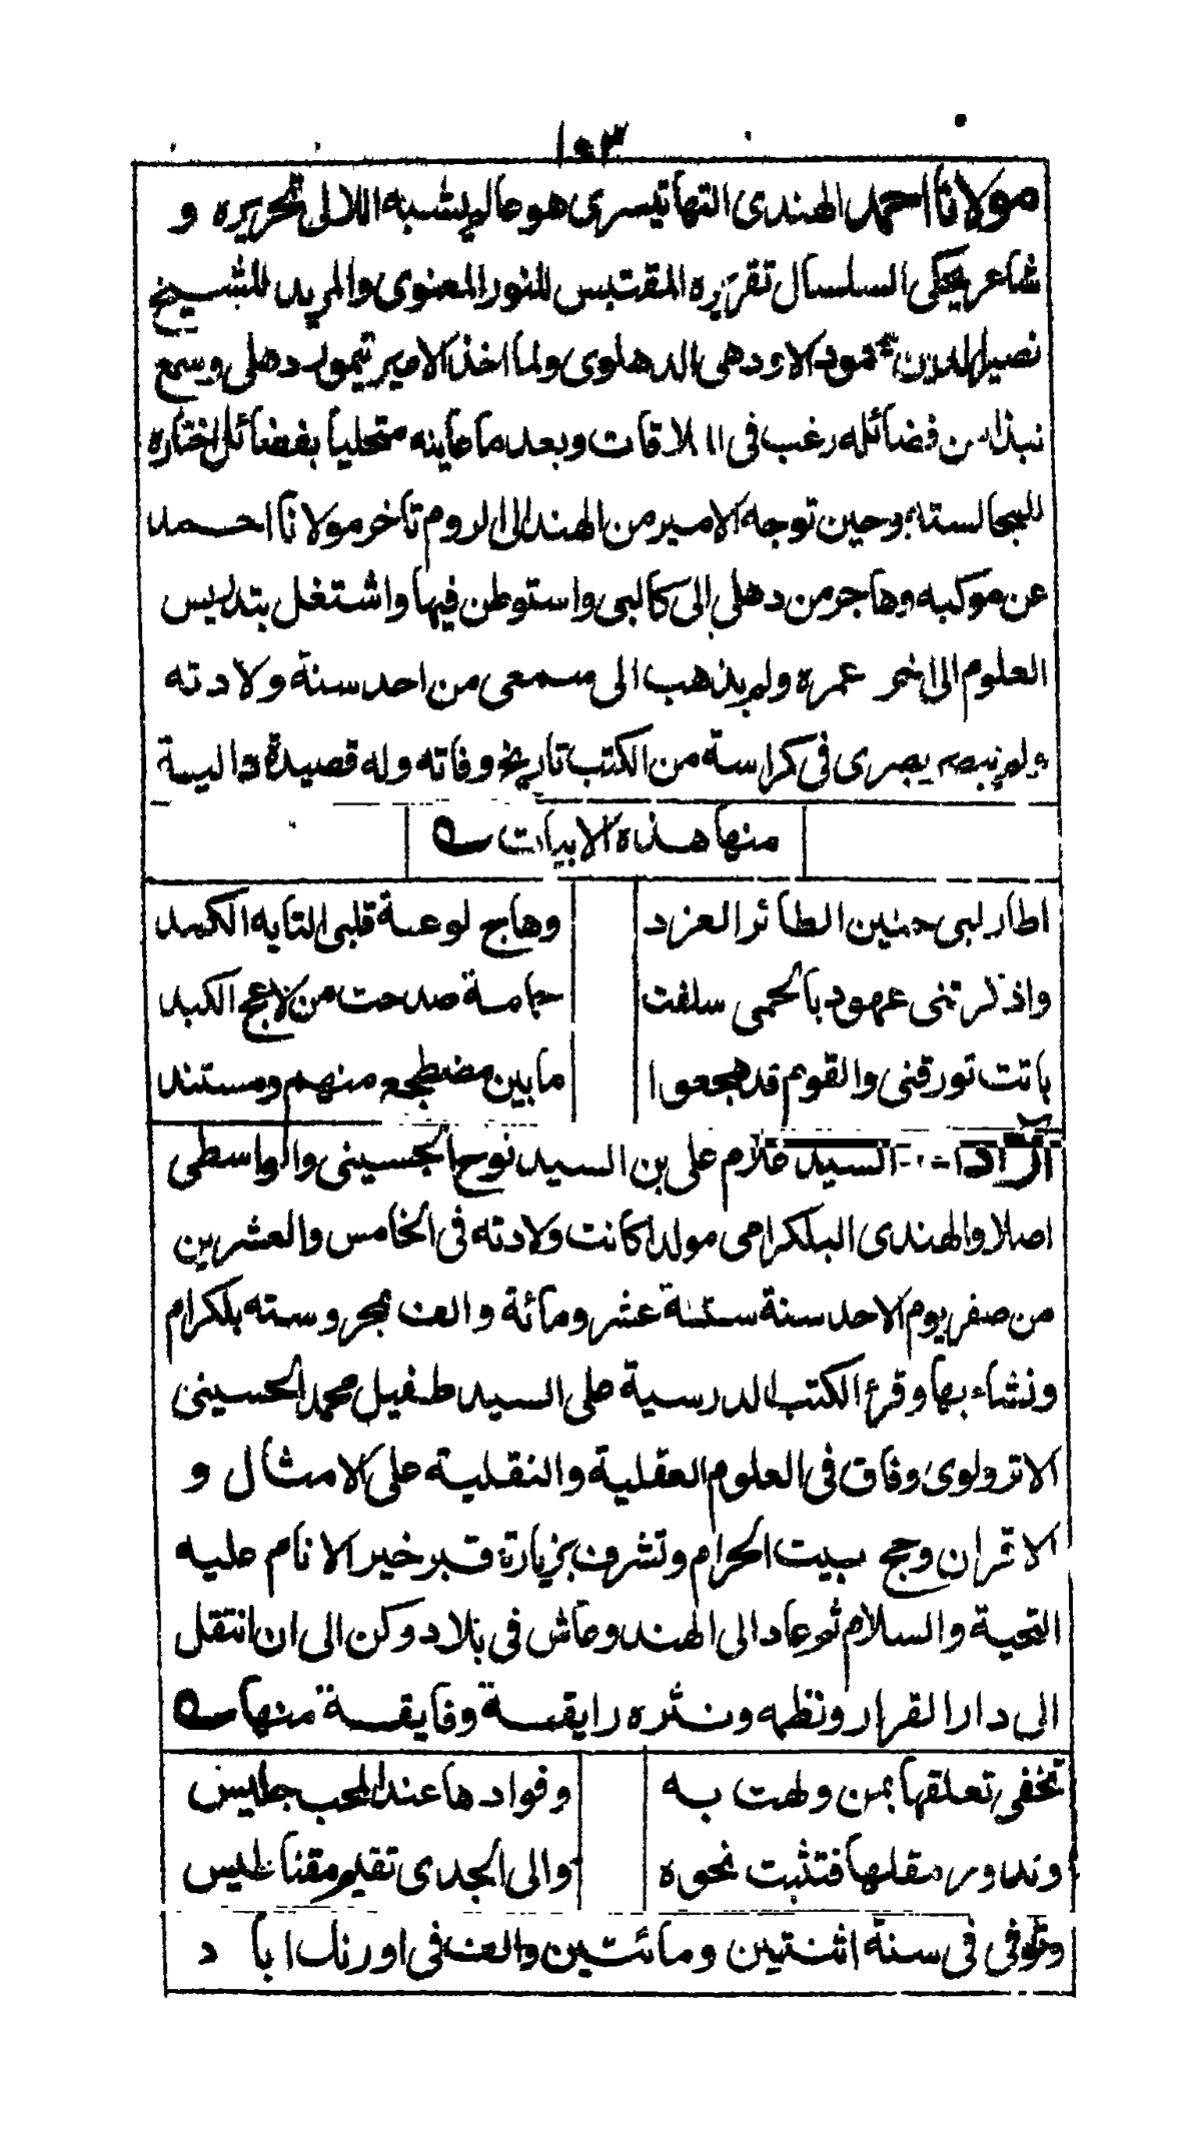 ١٥٣
مولانا احمد الهندى التهانيسرى هو عالم يشبه اللالى تحريره و
شاعر يحكى السلسال تقريره المقتبس للنور المعنوى والمريد للشيخ
نصير الدين محمود الاودهى الدهلوى ولما اخذ الامير تيمور دهلى وسمع
نبذا من فضائله رغب فى الملاقات وبعد ما عاينه متحليا بفضائل اختاره
للمجالسته وحين توجه الامير من الهند الى الروم تاخر مولانا احمد
عن موكبه وهاجر من دهلى الى كالبى واستوطن فيها واشتغل بتدريس
العلوم الى اخر عمره ولم يذهب الى مسمعى من احد سنة ولادته
ولم يبصر بصرى فى كراسة من الكتب تاريخ وفاته وله قصيدة دالية
منها هذه الابيات
اطار لبى حنين الطائر الغرد وهاج لوعة قلبى التايه الكمد
واذكرتنى عهود بالحمى سلفت حمامة صدحت من لاعج الكبد
باتت تورقنى والقوم قد هجعوا ما بين مضطجع منهم ومستند
آزاد السيد غلام على بن السيد نوح الحسينى والواسطى
اصلا والهندى البلكرامى مولدا كانت ولادته فى الخامس والعشرين
من صفر يوم الاحد سنة ستة عشر ومائة والف بمحروسته بلكرام
ونشاء بها وقرئ الكتب الدرسية على السيد طفيل محمد الحسينى
الاترولوى وفاق فى العلوم العقلية والنقلية على الامثال و
الاقران وحج بيت الحرام وتشرف بزيارة قبر خير الانام عليه
التحية والسلام ثم عاد الى الهند وعاش فى بلاد دكن الى ان انتقل
الى دار القرار ونظمه ونثره رايقة وفايقة منها
تخفى تعلقها بمن ولهت به وفوادها عند المحب جليس
وتداور مقلها فتثبت نحوه والى الجدى تقيم مقناطيس
وتوفى فى سنة اثنتين ومائتين والف فى اورنك اباد